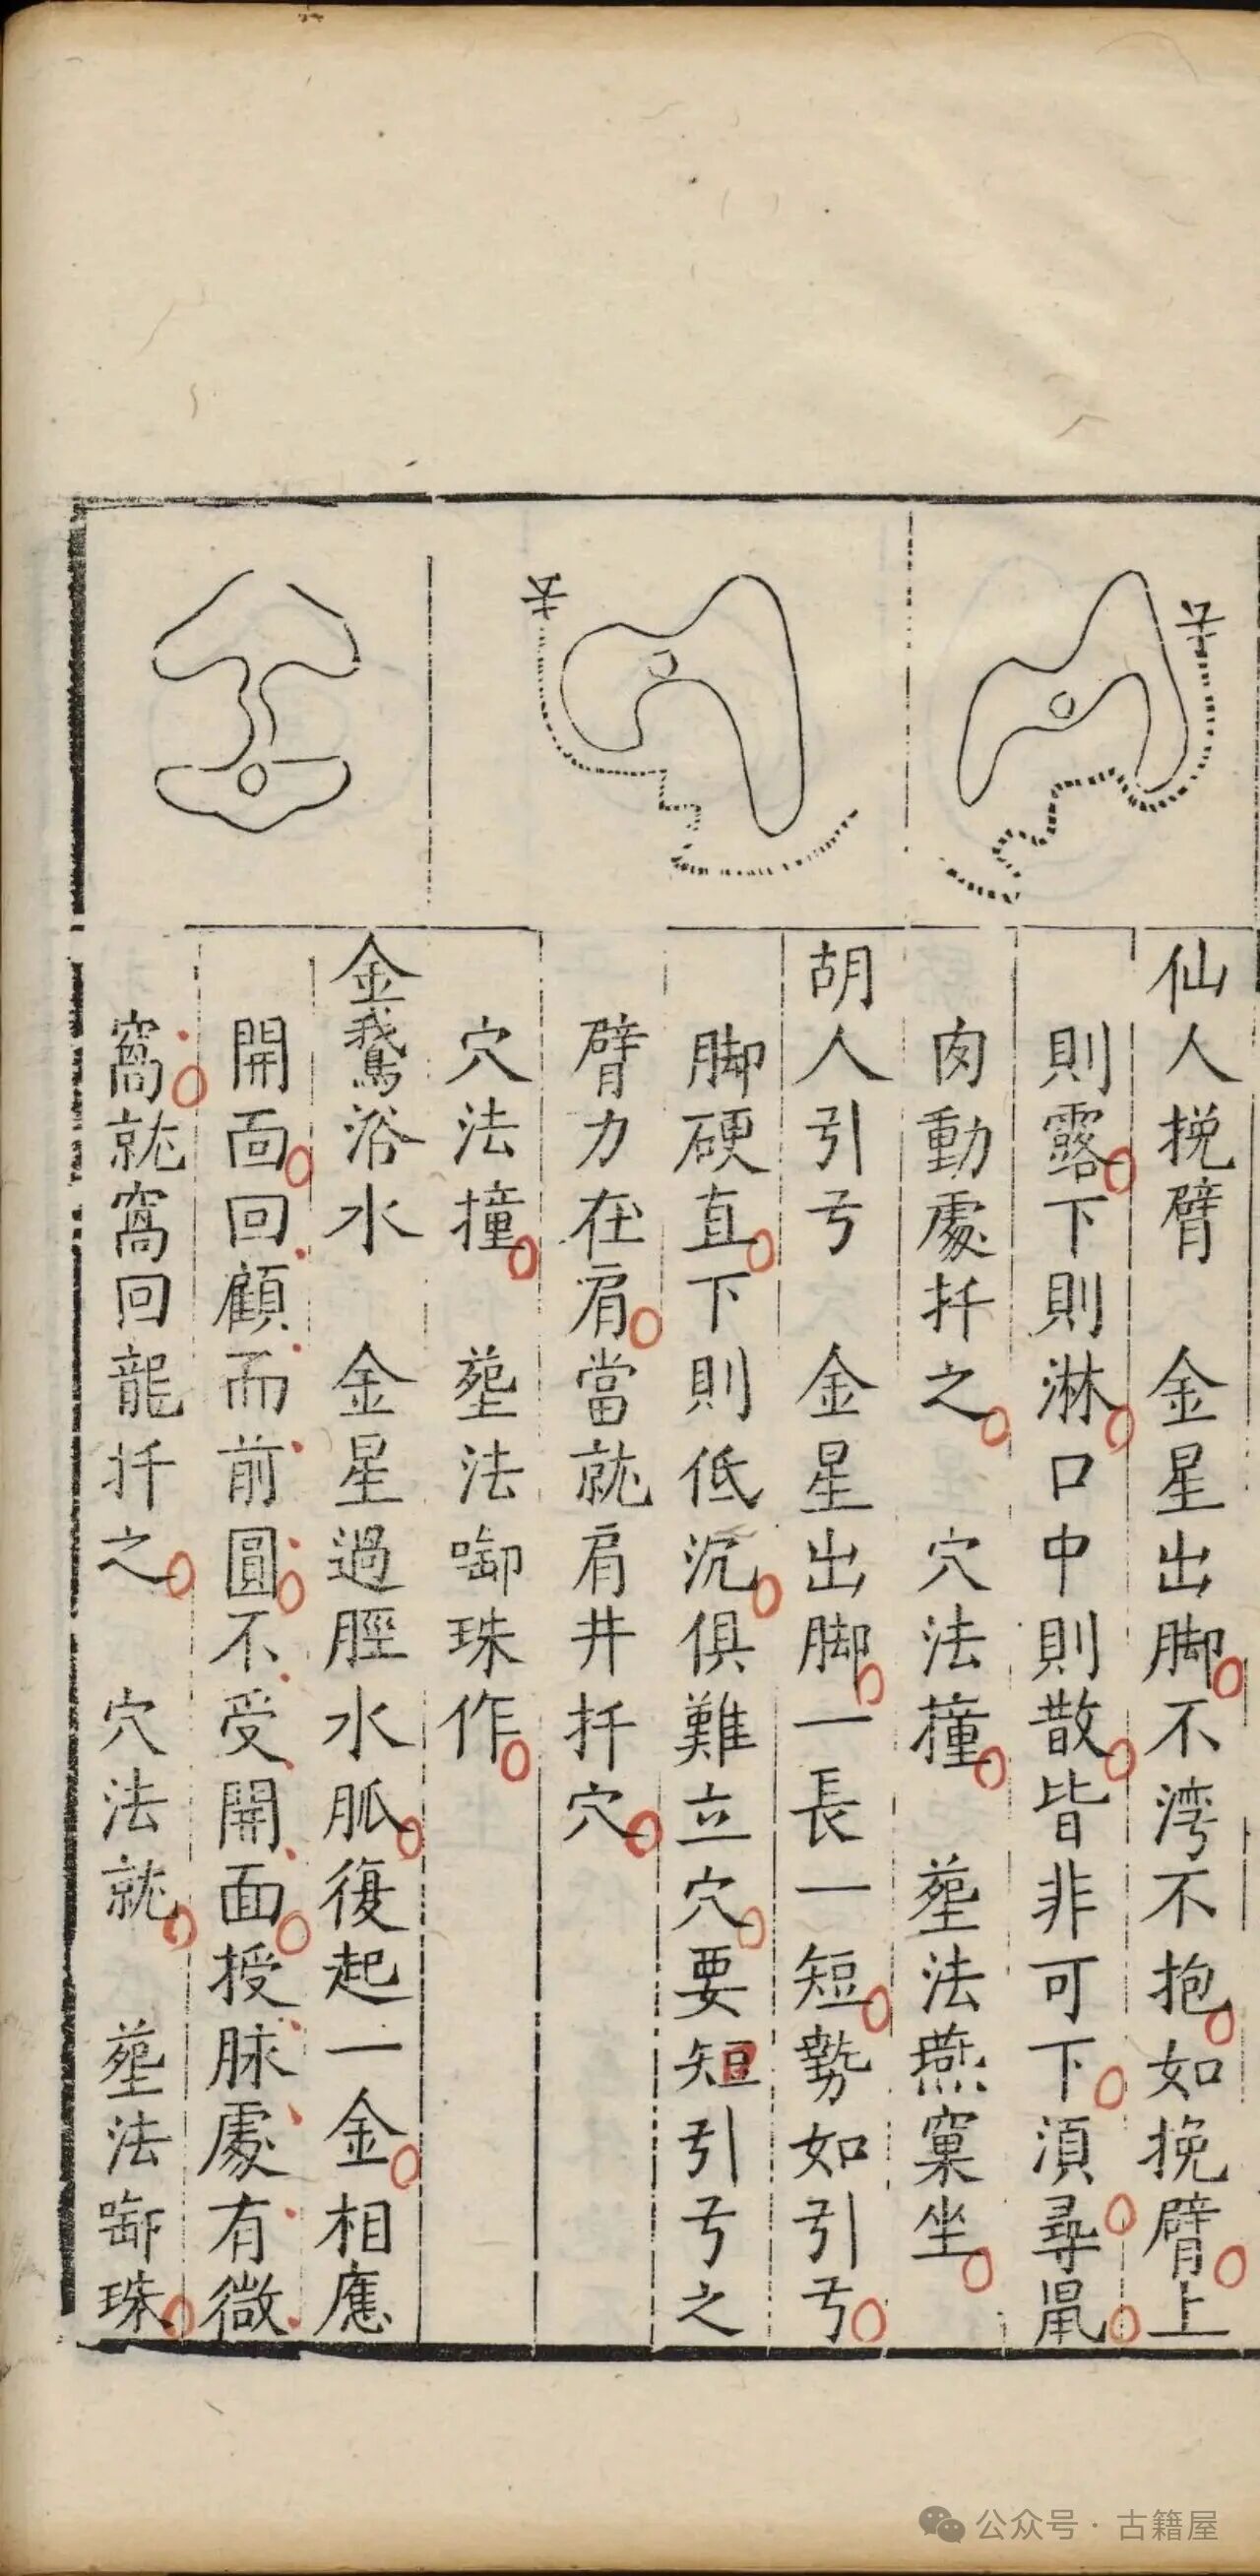 仙人挽臂　金星出脚不湾不抱如挽臂上
則露下則淋口中則散皆非可下湏尋鼠
肉動處扦之　穴法撞　塟法燕窠坐
胡人引弓　金星出脚一長一短勢如引弓
脚硬直下則低沉俱難立穴要短引弓之
臂力在肩當就肩井扦穴
穴法撞　塟法啣珠作
金鵞浴水　金星過脛水脈復起一金相應
開面回顧而前圓不受開面授脉處有微
窩就窩回龍扦之　穴法就　塟法啣珠
公众号·古籍屋